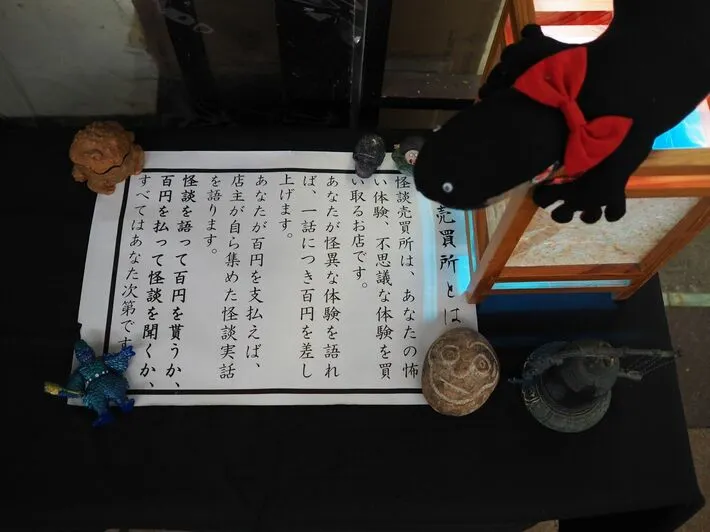 売買所とは
怪談売買所は、あなたの怖
い体験、不思議な体験を買
い取るお店です。
あなたが怪異な体験を語れ
ば、一話につき百円を差し
上げます。
あなたが百円を支払えば、
店主が自ら集めた怪談実話
を語ります。
怪談を語って百円を貰うか、
百円を払って怪談を聞くか、
すべてはあなた次第です